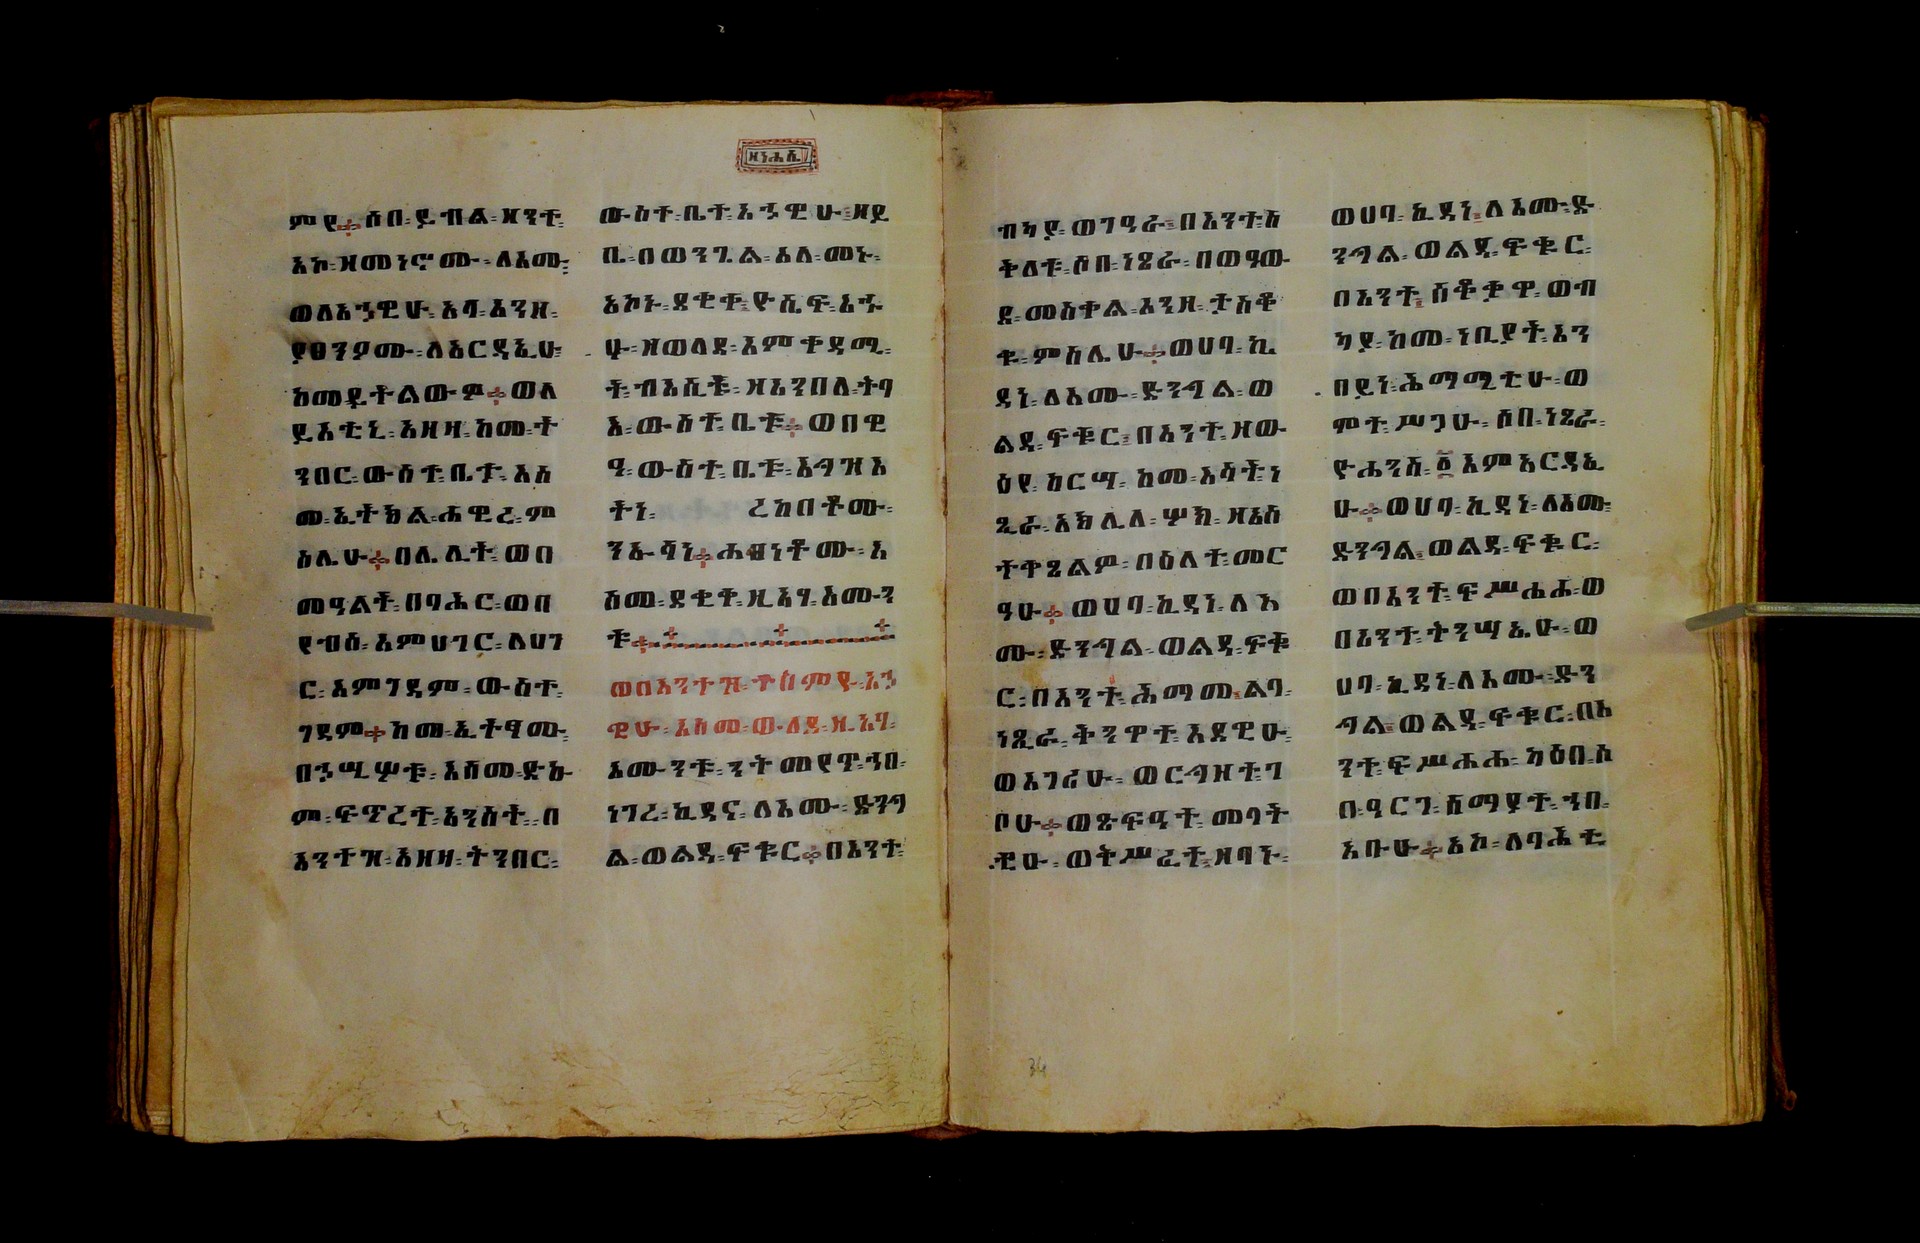 ዘነሐሴ
ምየ። ሶበ፡ ይብል፡ ዘንተ፡
አኮ፡ ዘመነኖሙ፡ ለእሙ፡
ወለአኀዊሁ፡ አላ፡ እንዘ፡
ያፀንዖሙ፡ ለአርዳኢሁ፡
ከመ፡ ይትልውዎ። ወለ
ይእቲኒ፡ አዘዛ፡ ከመ፡ ት
ንበር፡ ውስተ፡ ቤታ፡ እስ
መ፡ ኢትክል፡ ሐዊረ፡ ም
ስሌሁ። በሌሊት፡ ወበ
መዓልት፡ በባሕር፡ ወበ
የብስ፡ እምሀገር፡ ለሀገ
ር፡ እምገዳም፡ ውስተ፡
ገዳም። ከመ፡ ኢትፃሙ፡
በኀሢሦቱ፡ እስመ፡ ድኩ
ም፡ ፍጥረተ፡ አንስት፡ በ
እንተዝ፡ አዘዛ፡ ትንበር፡
ውስተ፡ ቤተ፡ አኀዊሁ፡ ዘይ
ቤ፡ በወንጌል፡ እለ፡ መኑ፡
እኮኑ፡ ደቂቀ፡ ዮሴፍ፡ እኁ
ሃ፡ ዘወለደ፡ እምቀዳሚ
ት፡ ብእሲቱ፡ ዘእንበለ፡ ትባ
እ፡ ውስተ፡ ቤቱ። ወበዊ
ዓ፡ ውስተ፡ ቤቱ፡ እግዝእ
ትነ፡ ረከበቶሙ፡
ንኡሳነ። ሐፀነቶሙ፡ እ
ስመ፡ ደቂቀ፡ ዚአሃ፡ እሙን
ቱ።
ወበእንተዝ፡ ተሰምየ፡ አኀ
ዊሁ፡ እስመ፡ ውሉደ፡ ዚአሃ፡
እሙንቱ፡ ንትመየጥ፡ ኀበ፡
ነገረ፡ ኪዳና፡ ለእሙ፡ ድንግ
ል፡ ወልዳ፡ ፍቁር። በእንተ፡
ብካያ፡ ወገዓራ፡ በእንተ፡ ስ
ቅለቱ፡ ሶበ፡ ነጸራ፡ በወዓው
ደ፡ መስቀል፡ እንዘ፡ ታስቆ
ቁ፡ ምስሌሁ። ወሀባ፡ ኪ
ዳነ፡ ለእሙ፡ ድንግል፡ ወ
ልዳ፡ ፍቁር፡ በእንተ፡ ዘው
ዕየ፡ ከርሣ፡ ከመ፡ እሳት፡ ነ
ጺራ፡ አክሊለ፡ ሦክ፡ ዘእስ
ተቀጸልዎ፡ በዕለተ፡ መር
ዓሁ። ወሀባ፡ ኪዳነ፡ ለእ
ሙ፡ ድንግል፡ ወልዳ፡ ፍቁ
ር፡ በእንተ፡ ሕማሙ፡ ልባ፡
ነጺራ፡ ቅንዋተ፡ እደዊሁ፡
ወእገሪሁ፡ ወርግዘተ፡ ገ
ቦሁ። ወጽፍዓተ፡ መላት
ቲሁ፡ ወትሥፈተ፡ ዘባኑ፡
ወሀባ፡ ኪዳነ፡ ለእሙ፡ ድ
ንግል፡ ወልዳ፡ ፍቁር፡
በእንተ፡ ሰቆቃዋ፡ ወብ
ካያ፡ ከመ፡ ነቢያት፡ እን
በይነ፡ ሕማማቲሁ፡ ወ
ምተ፡ ሥጋሁ፡ ሶበ፡ ነጸራ፡
ዮሐንስ፡ ፩እምአርዳኢ
ሁ። ወሀባ፡ ኪዳነ፡ ለእሙ፡
ድንግል፡ ወልዳ፡ ፍቁር፡
ወበእንተ፡ ፍሥሐሐ፡ ወ
በእንተ፡ ትንሣኤሁ፡ ወ
ሀባ፡ ኪዳነ፡ ለእሙ፡ ድን
ግል፡ ወልዳ፡ ፍቁር፡ በእ
ንተ፡ ፍሥሐሐ፡ ካዕበ፡ ሶ
በ፡ ዓርገ፡ ሰማያተ፡ ኀበ፡
አቡሁ። አኮ፡ ለባሕቲ
34